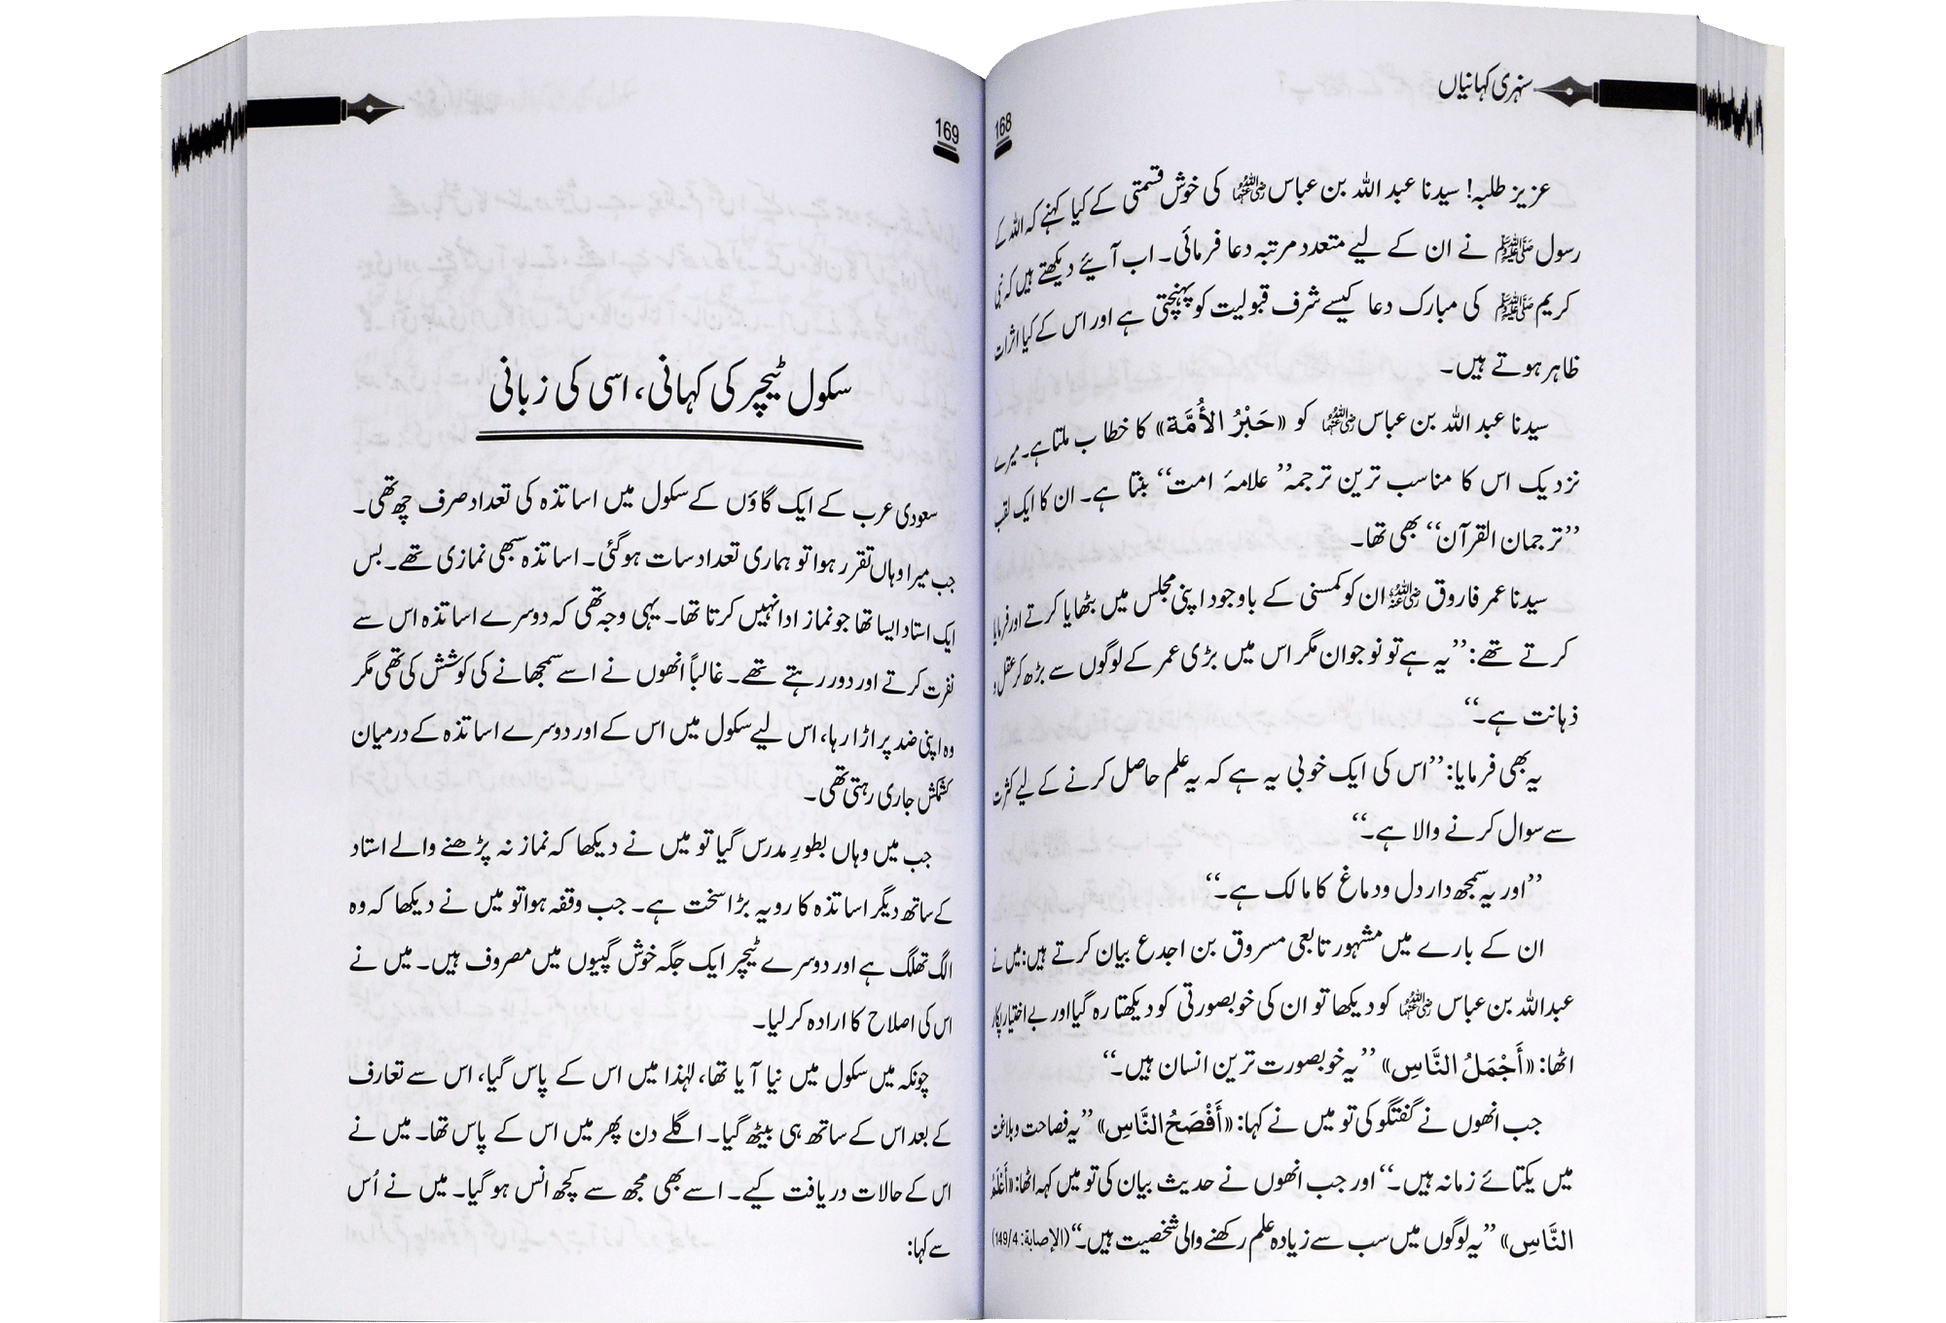 سنہری کہانیاں
168
عزیز طلبہ! سیدنا عبد اللہ بن عباس رضی اللہ عنہما کی خوش قسمتی کے کیا کہنے کہ اللہ کے
رسول ﷺ نے ان کے لیے متعدد مرتبہ دعا فرمائی۔ اب آئیے دیکھتے ہیں کہ نبی
کریم ﷺ کی مبارک دعا کیسے شرف قبولیت کو پہنچتی ہے اور اس کے کیا اثرات
ظاہر ہوتے ہیں۔
سیدنا عبد اللہ بن عباس رضی اللہ عنہما کو «حَبْرُ الأُمَّة» کا خطاب ملتا ہے۔ میرے
نزدیک اس کا مناسب ترین ترجمہ ’’علامۂ امت‘‘ بنتا ہے۔ ان کا ایک لقب
’’ترجمان القرآن‘‘ بھی تھا۔
سیدنا عمر فاروق رضی اللہ عنہ ان کو کمسنی کے باوجود اپنی مجلس میں بٹھایا کرتے اور فرمایا
کرتے تھے: ’’یہ ہے تو نوجوان مگر اس میں بڑی عمر کے لوگوں سے بڑھ کر عقل و
ذہانت ہے۔‘‘
یہ بھی فرمایا: ’’اس کی ایک خوبی یہ ہے کہ یہ علم حاصل کرنے کے لیے کثرت
سے سوال کرنے والا ہے۔‘‘
’’اور یہ سمجھ دار دل ودماغ کا مالک ہے۔‘‘
ان کے بارے میں مشہور تابعی مسروق بن اجدع بیان کرتے ہیں: میں نے
عبداللہ بن عباس رضی اللہ عنہما کو دیکھا تو ان کی خوبصورتی کو دیکھتا رہ گیا اور بے اختیار پکار
اٹھا: «أَجْمَلُ النَّاسِ» ’’یہ خوبصورت ترین انسان ہیں۔‘‘
جب انھوں نے گفتگو کی تو میں نے کہا: «أَفْصَحُ النَّاسِ» ’’یہ فصاحت وبلاغت
میں یکتائے زمانہ ہیں۔‘‘ اور جب انھوں نے حدیث بیان کی تو میں کہہ اٹھا: «أَعْلَمُ
النَّاسِ» ’’یہ لوگوں میں سب سے زیادہ علم رکھنے والی شخصیت ہیں۔‘‘ (الإصابة: 149/4)
169
سکول ٹیچر کی کہانی، اسی کی زبانی
سعودی عرب کے ایک گاؤں کے سکول میں اساتذہ کی تعداد صرف چھ تھی۔
جب میرا وہاں تقرر ہوا تو ہماری تعداد سات ہوگئی۔ اساتذہ سبھی نمازی تھے۔ بس
ایک استاد ایسا تھا جو نماز ادا نہیں کرتا تھا۔ یہی وجہ تھی کہ دوسرے اساتذہ اس سے
نفرت کرتے اور دور رہتے تھے۔ غالباً انھوں نے اسے سمجھانے کی کوشش کی تھی مگر
وہ اپنی ضد پر اڑا رہا، اس لیے سکول میں اس کے اور دوسرے اساتذہ کے درمیان
کشمکش جاری رہتی تھی۔
جب میں وہاں بطورِ مدرس گیا تو میں نے دیکھا کہ نماز نہ پڑھنے والے استاد
کے ساتھ دیگر اساتذہ کا رویہ بڑا سخت ہے۔ جب وقفہ ہوا تو میں نے دیکھا کہ وہ
الگ تھلگ ہے اور دوسرے ٹیچر ایک جگہ خوش گپیوں میں مصروف ہیں۔ میں نے
اس کی اصلاح کا ارادہ کر لیا۔
چونکہ میں سکول میں نیا آیا تھا، لہٰذا میں اس کے پاس گیا، اس سے تعارف
کے بعد اس کے ساتھ ہی بیٹھ گیا۔ اگلے دن پھر میں اس کے پاس تھا۔ میں نے
اس کے حالات دریافت کیے۔ اسے بھی مجھ سے کچھ انس ہو گیا۔ میں نے اُس
سے کہا: